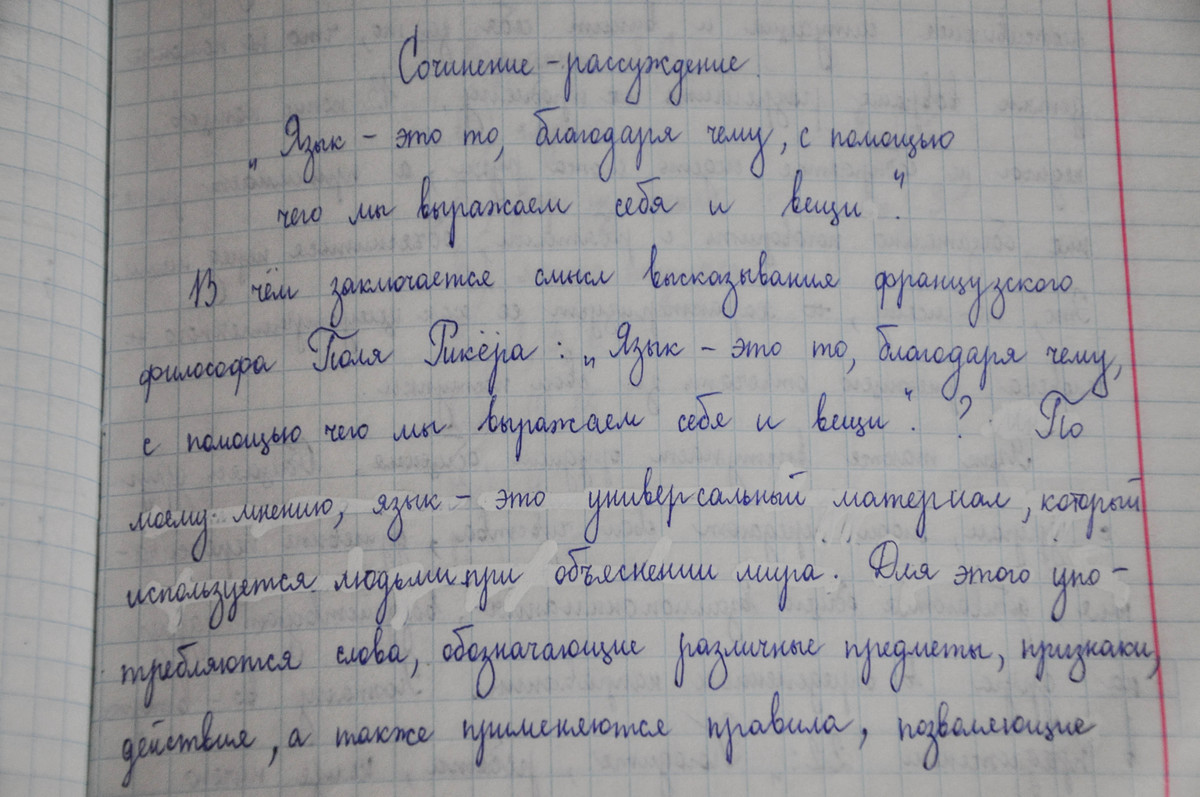 Сочинение - рассуждение.
„Язык - это то, благодаря чему, с помощью
чего мы выражаем себя и вещи".
В чём заключается смысл высказывания французского
философа Поля Рикёра: „Язык - это то, благодаря чему,
с помощью чего мы выражаем себя и вещи".? По
моему мнению, язык - это универсальный материал, который
используется людьми при объяснении мира. Для этого упо-
требляются слова, обозначающие различные предметы, признаки,
действия, а также применяются правила, позволяющие